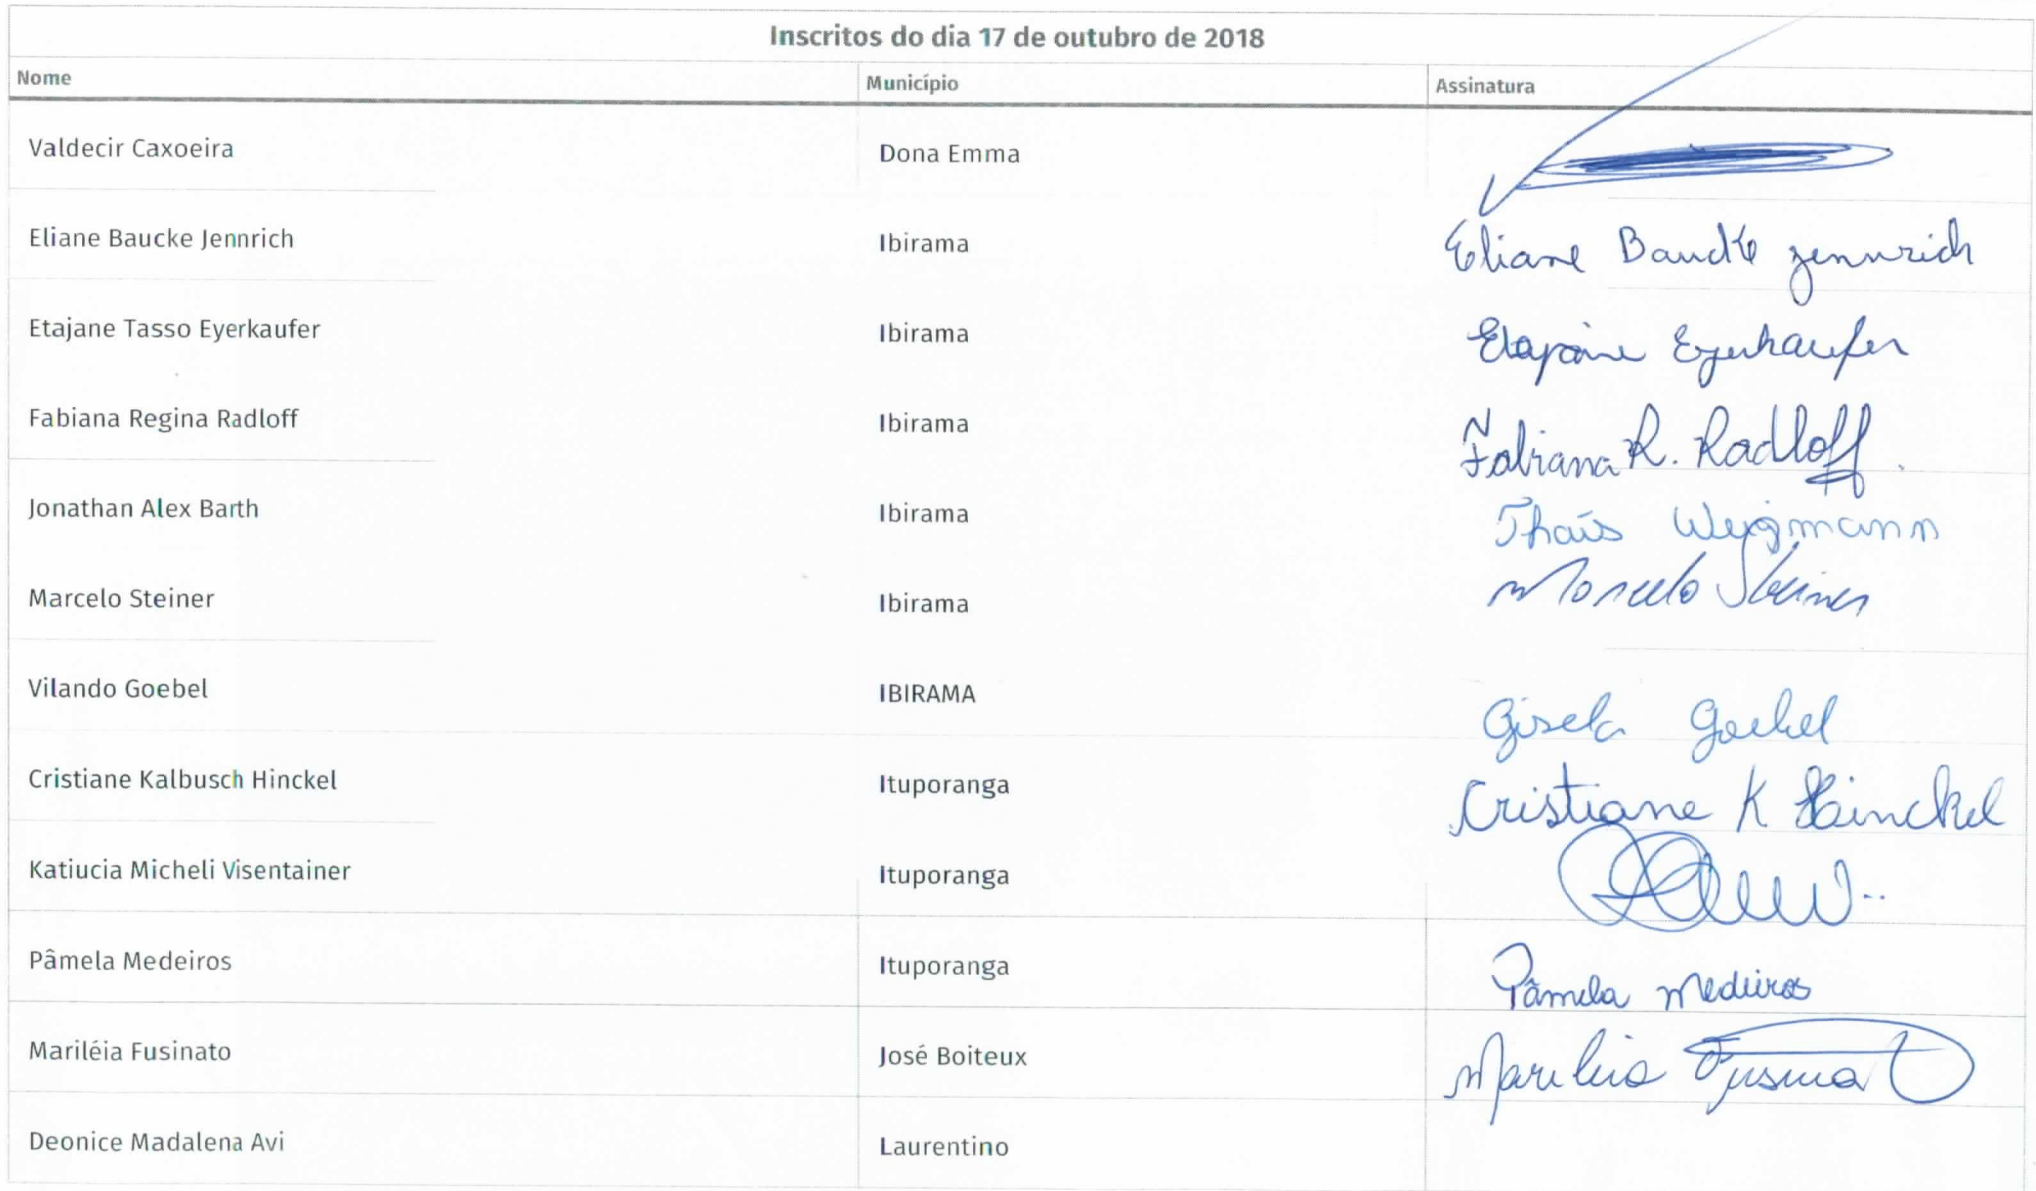 Inscritos do dia 17 de outubro de 2018
Nome Município Assinatura
Valdecir Caxoeira Dona Emma
Eliane Baucke Jennrich Ibirama Eliane Baucke Jennrich
Etajane Tasso Eyerkaufer Ibirama Etajane Eyerkaufer
Fabiana Regina Radloff Ibirama Fabiana R. Radloff
Jonathan Alex Barth Ibirama Thaís Weigmann
Marcelo Steiner Ibirama Marcelo Steiner
Vilando Goebel IBIRAMA Gisela Goebel
Cristiane Kalbusch Hinckel Ituporanga Cristiane K Hinckel
Katiucia Micheli Visentainer Ituporanga
Pâmela Medeiros Ituporanga Pâmela Medeiros
Mariléia Fusinato José Boiteux Marileia Fusinato
Deonice Madalena Avi Laurentino